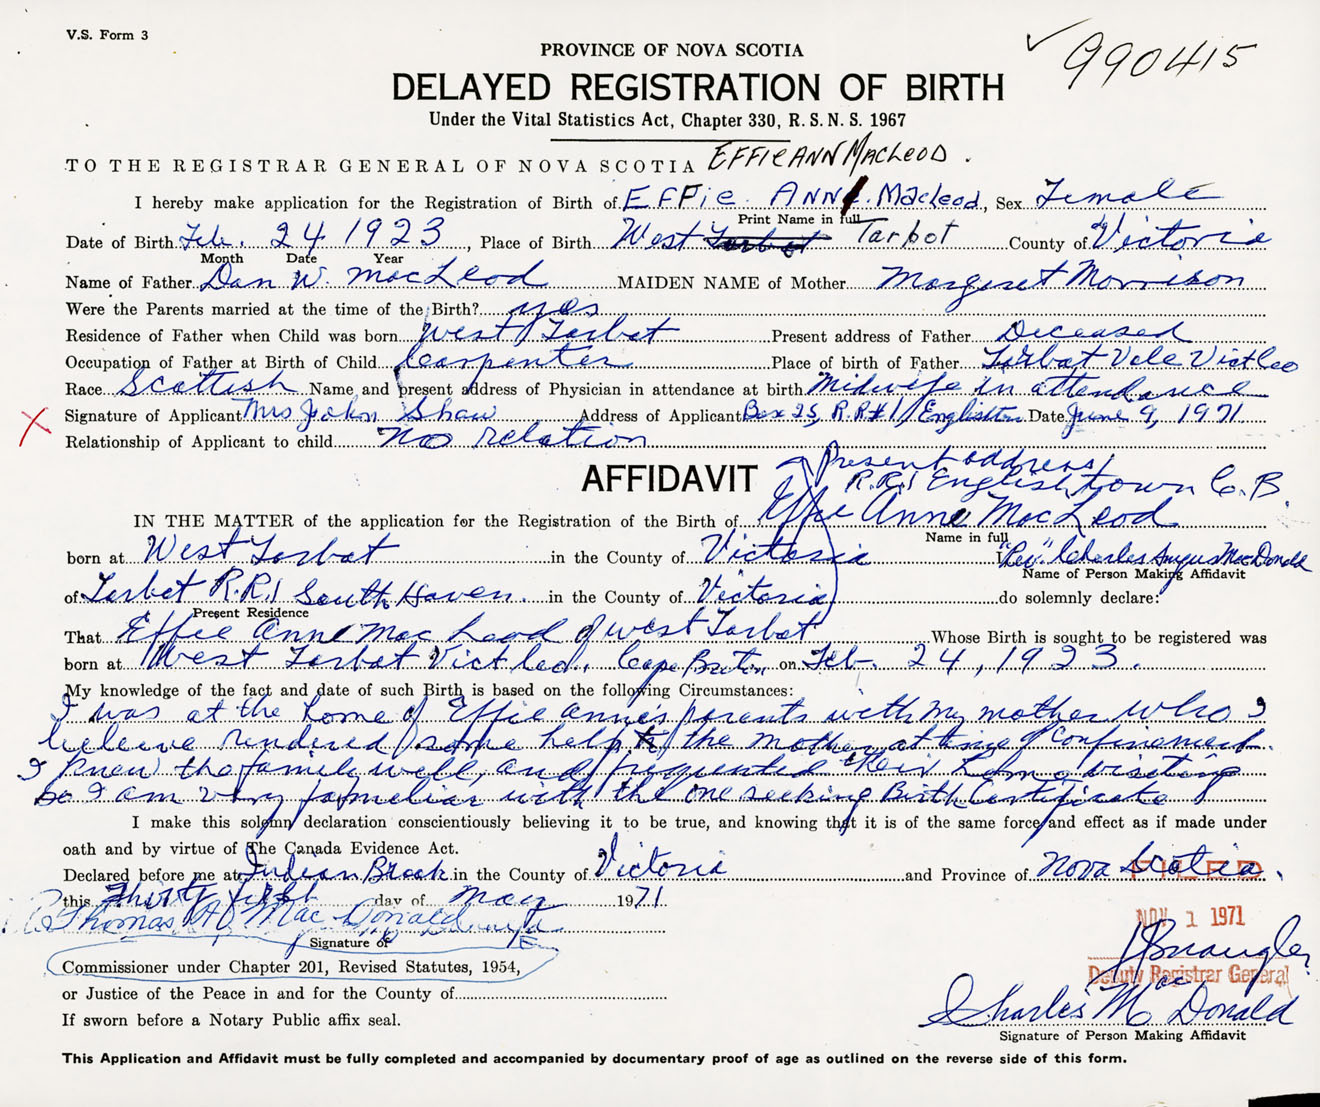 V.S. Form 3
990415
PROVINCE OF NOVA SCOTIA
DELAYED REGISTRATION OF BIRTH
Under the Vital Statistics Act, Chapter 330, R. S. N. S. 1967
TO THE REGISTRAR GENERAL OF NOVA SCOTIA EFFIE ANN MACLEOD.
I hereby make application for the Registration of Birth of EFFIE ANN MacLeod, Sex Female
Print Name in full
Date of Birth Feb. 24 1923, Place of Birth West Tarbot County of Victoria
Month Date Year
Name of Father Dan W. MacLeod MAIDEN NAME of Mother Margaret Morrison
Were the Parents married at the time of the Birth? yes
Residence of Father when Child was born West Tarbat Present address of Father Deceased
Occupation of Father at Birth of Child Carpenter Place of birth of Father Tarbat Vale Vict Co
Race Scottish Name and present address of Physician in attendance at birth Midwife in attendance
Signature of Applicant Mrs John Shaw Address of Applicant Box 25, R.R.#1, Englishtn Date June 9, 1971
Relationship of Applicant to child no relation
Present address
R.R.1 Englishtown C.B.
AFFIDAVIT
IN THE MATTER of the application for the Registration of the Birth of Effie Anne MacLeod
Name in full
born at West Tarbat in the County of Victoria I "Rev." Charles Angus MacDonald
Name of Person Making Affidavit
of Tarbet R.R.1 South Haven in the County of Victoria do solemnly declare:
Present Residence
That Effie Anne Mac Leod of West Tarbat Whose Birth is sought to be registered was
born at West Tarbat Vict Co., Cape Breton on Feb. 24, 1923.
My knowledge of the fact and date of such Birth is based on the following Circumstances:
I was at the home of Effie Anne's parents with my mother who I
beleive rendered some help to the mother at time of confinement.
I knew the family well, and frequented their home visiting
so I am very familiar with the one seeking Birth Certificate
I make this solemn declaration conscientiously believing it to be true, and knowing that it is of the same force and effect as if made under
oath and by virtue of The Canada Evidence Act.
Declared before me at Indian Brook in the County of Victoria and Province of Nova Scotia.
FILED
this Thirty first day of May 1971
NOV 1 1971
Thomas A. MacDonald
Signature of
Commissioner under Chapter 201, Revised Statutes, 1954,
Deputy Registrar General
or Justice of the Peace in and for the County of
If sworn before a Notary Public affix seal.
Charles MacDonald
Signature of Person Making Affidavit
This Application and Affidavit must be fully completed and accompanied by documentary proof of age as outlined on the reverse side of this form.